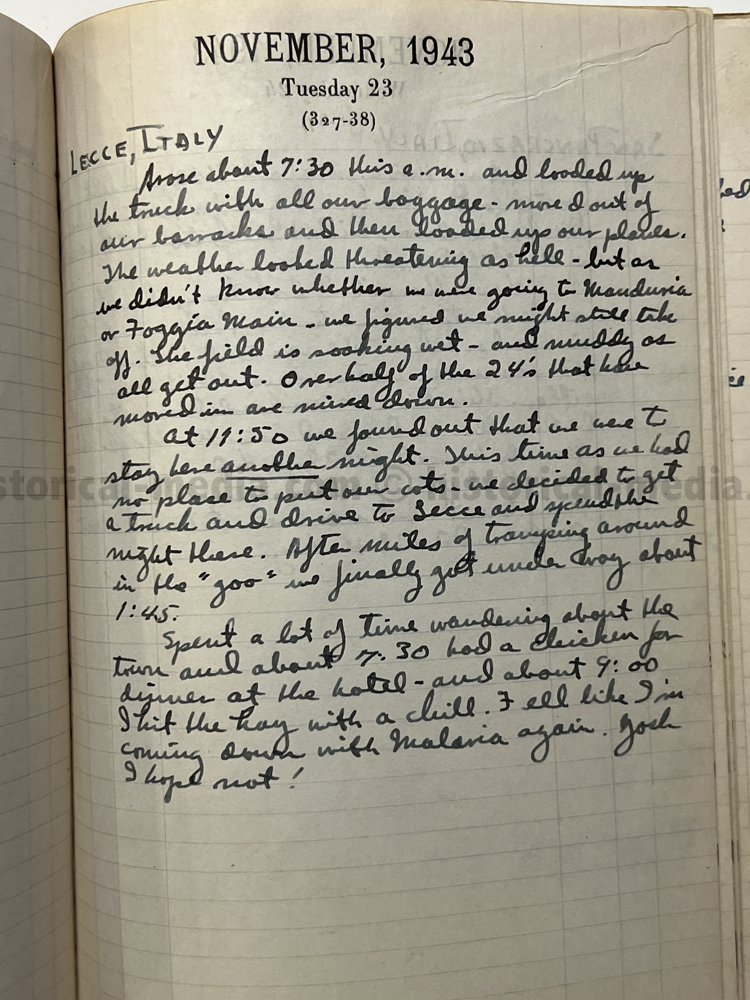 NOVEMBER, 1943
Tuesday 23
(327-38)
LECCE, ITALY
Arose about 7:30 this a.m. and loaded up
the truck with all our baggage - moved out of
our barracks and then loaded up our planes.
The weather looked threatening as hell - but as
we didn't know whether we were going to Manduria
or Foggia Main - we figured we might still take
off. The field is soaking wet - and muddy as
all get out. Over half of the 24's that have
moved in are mired down.
At 11:50 we found out that we were to
stay here another night. This time as we had
no place to put our cots - we decided to get
a truck and drive to Lecce and spend the
night there. After miles of tramping around
in the "goo" we finally got under way about
1:45.
Spent a lot of time wandering about the
town and about 7:30 had a chicken for
dinner at the hotel - and about 9:00
I hit the hay with a chill. Fell like I'm
coming down with Malaria again. Gosh
I hope not!